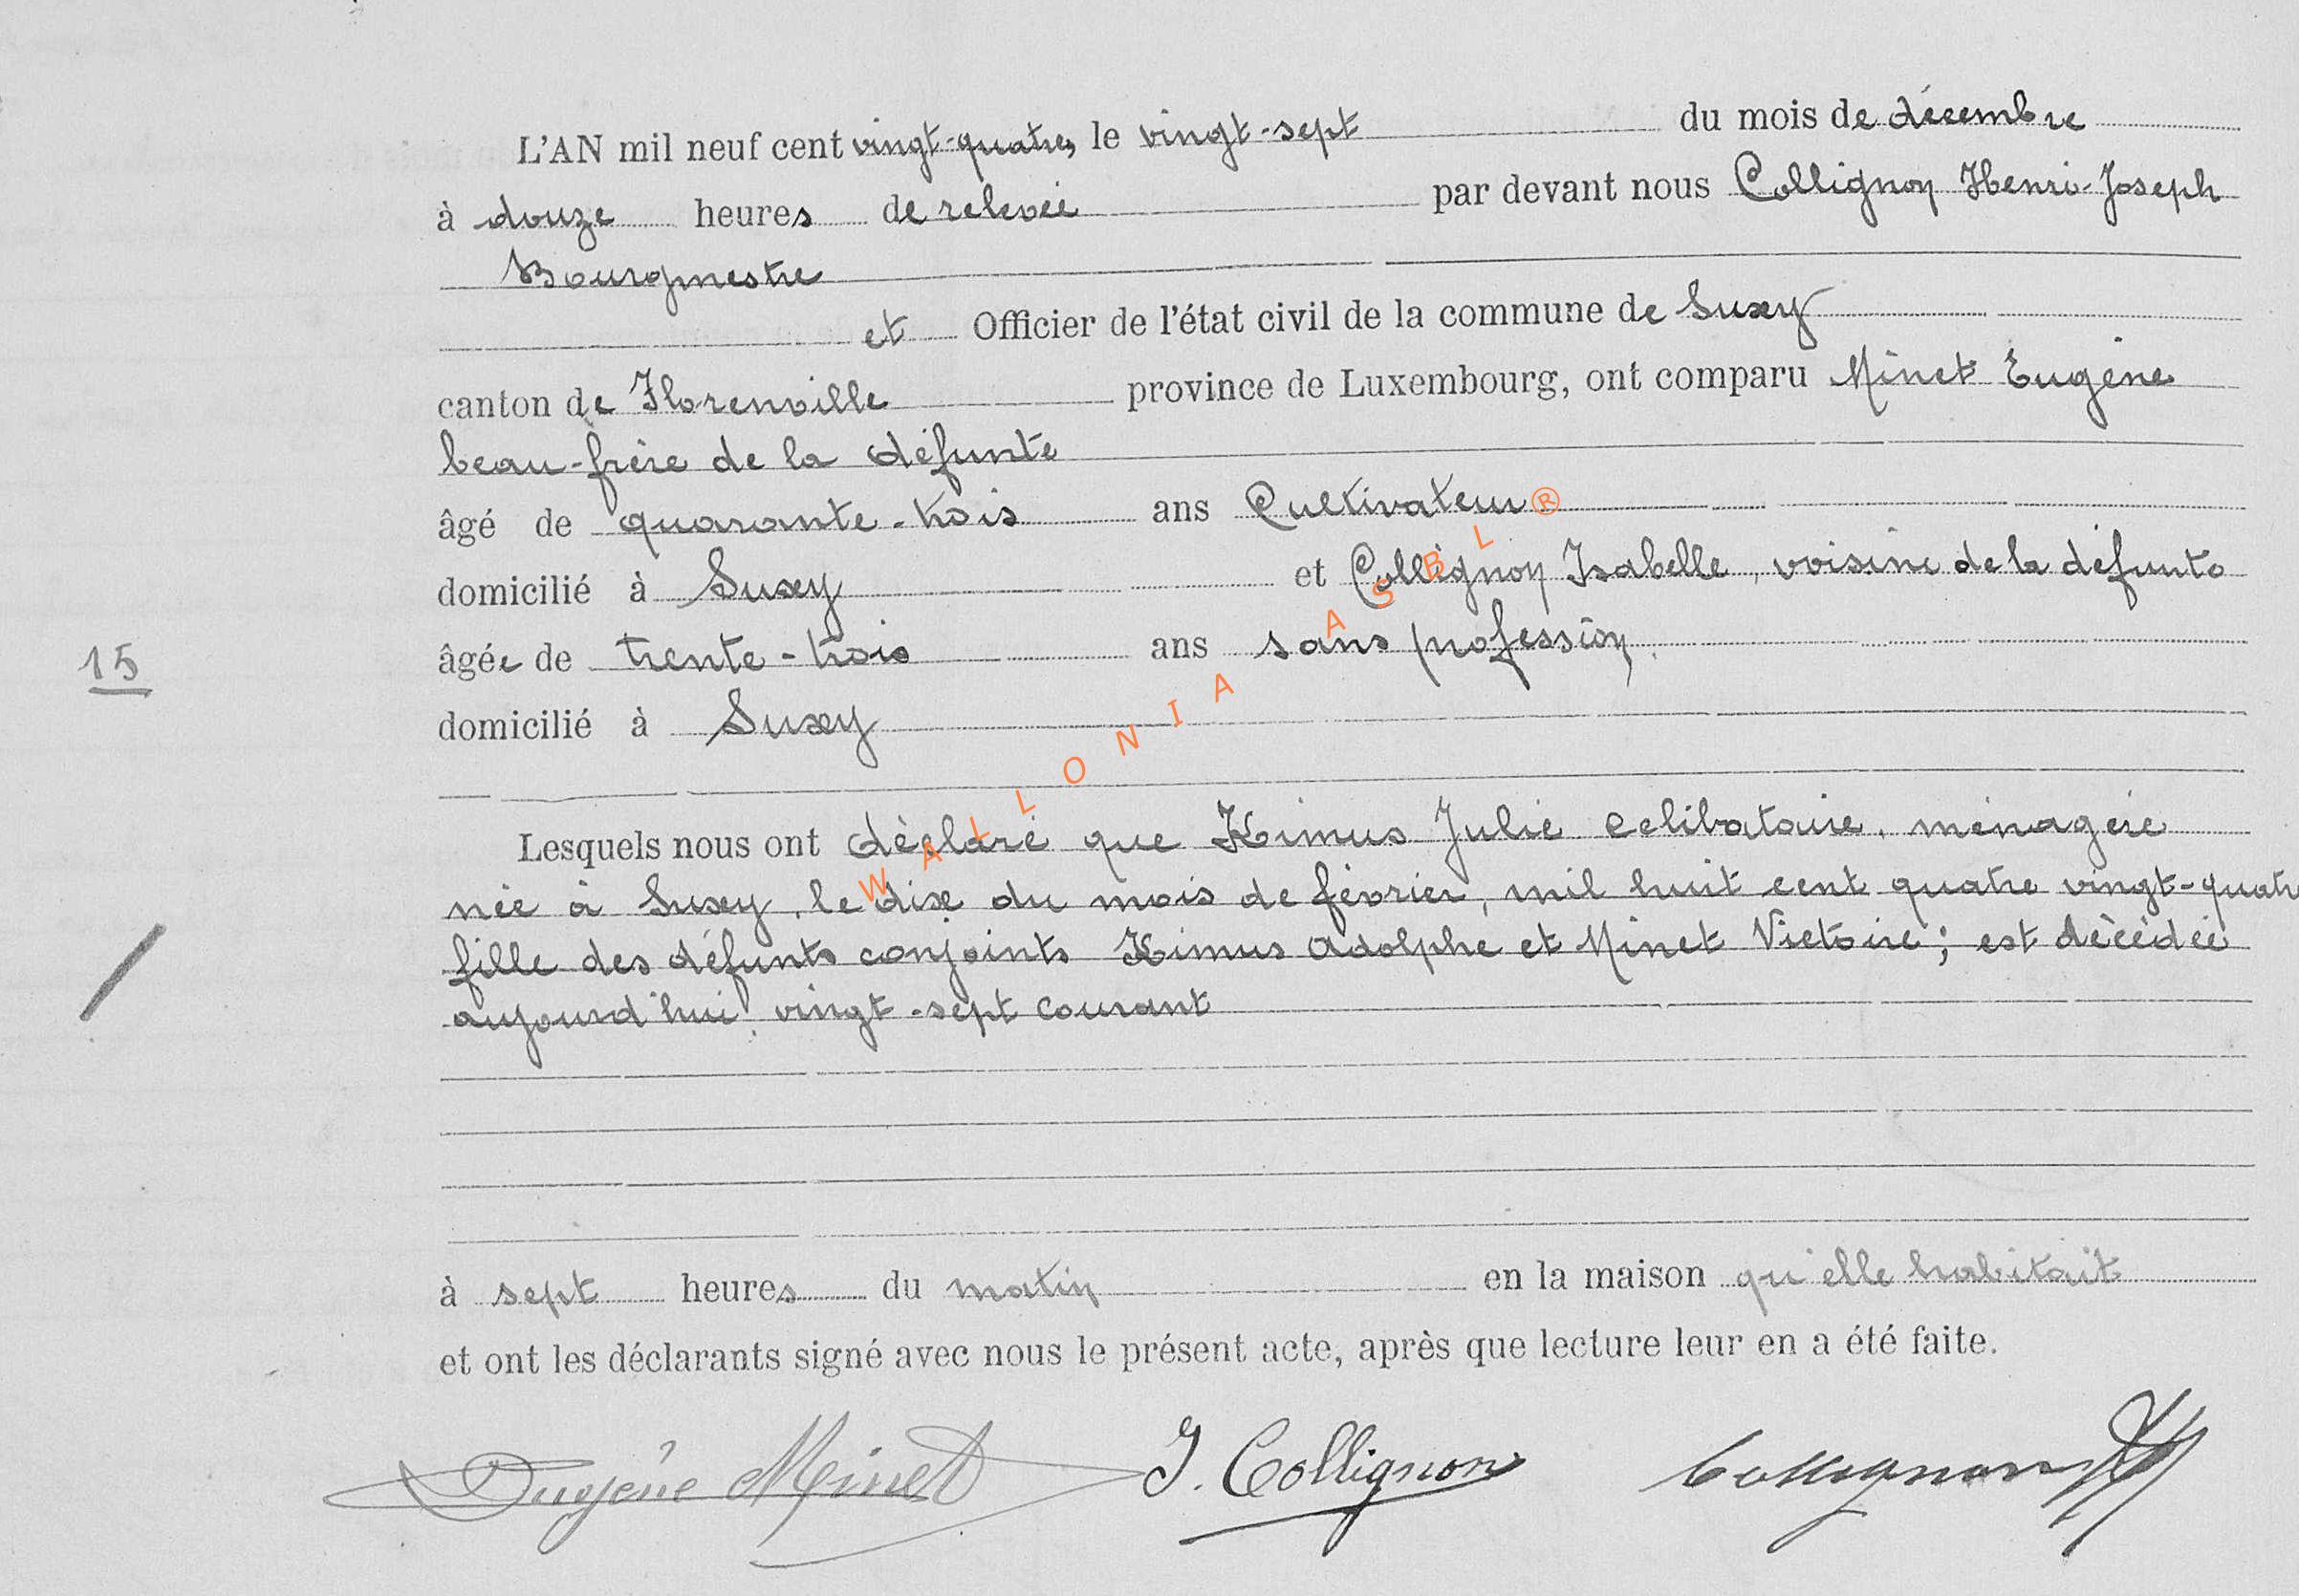 L'AN mil neuf cent vingt-quatre, le vingt-sept du mois de décembre
à douze heures de relevée par devant nous Collignon Henri-Joseph
Bourgmestre
et Officier de l'état civil de la commune de Suxy
canton de Florenville province de Luxembourg, ont comparu Minet Eugène
beau-frère de la défunte
âgé de quarante-trois ans Cultivateur
domicilié à Suxy et Collignon Isabelle, voisine de la défunte
15
âgée de trente-trois ans sans profession.
domicilié à Suxy
Lesquels nous ont déclaré que Kimus Julie celibataire, ménagère
née à Suxy, le dix du mois de février, mil huit cent quatre vingt-quatre
fille des défunts conjoints Kimus Adolphe et Minet Victoire; est décédée
aujourd'hui vingt-sept courant
à sept heures du matin en la maison qu'elle habitait
et ont les déclarants signé avec nous le présent acte, après que lecture leur en a été faite.
Eugène Minet J. Collignon Collignon
WALLONIA ASBL ®